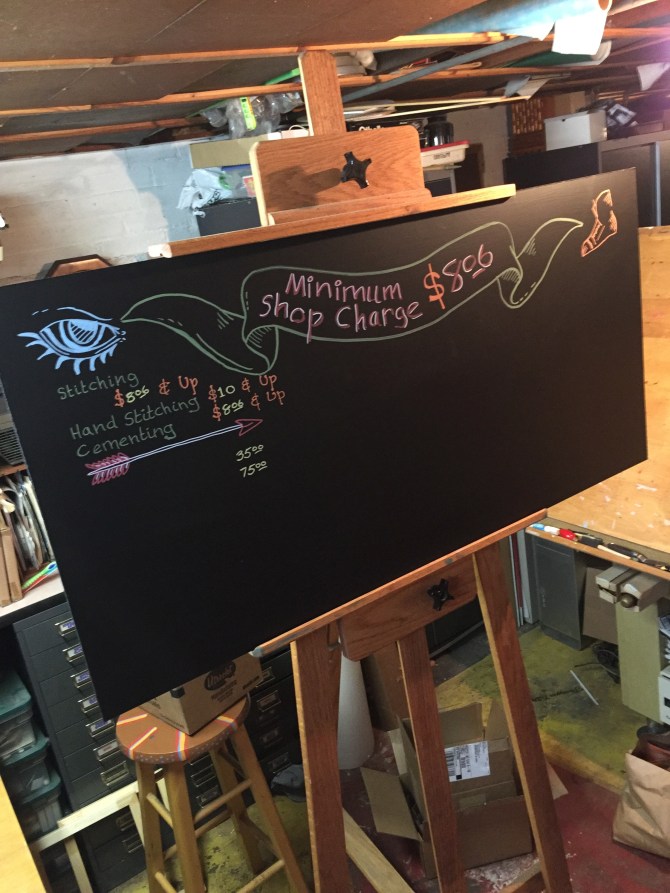 Minimum
Shop Charge $8.00
Stitching
$8.00 & Up
Hand Stitching $10 & Up
Cementing $8.00 & Up
35.00
75.00